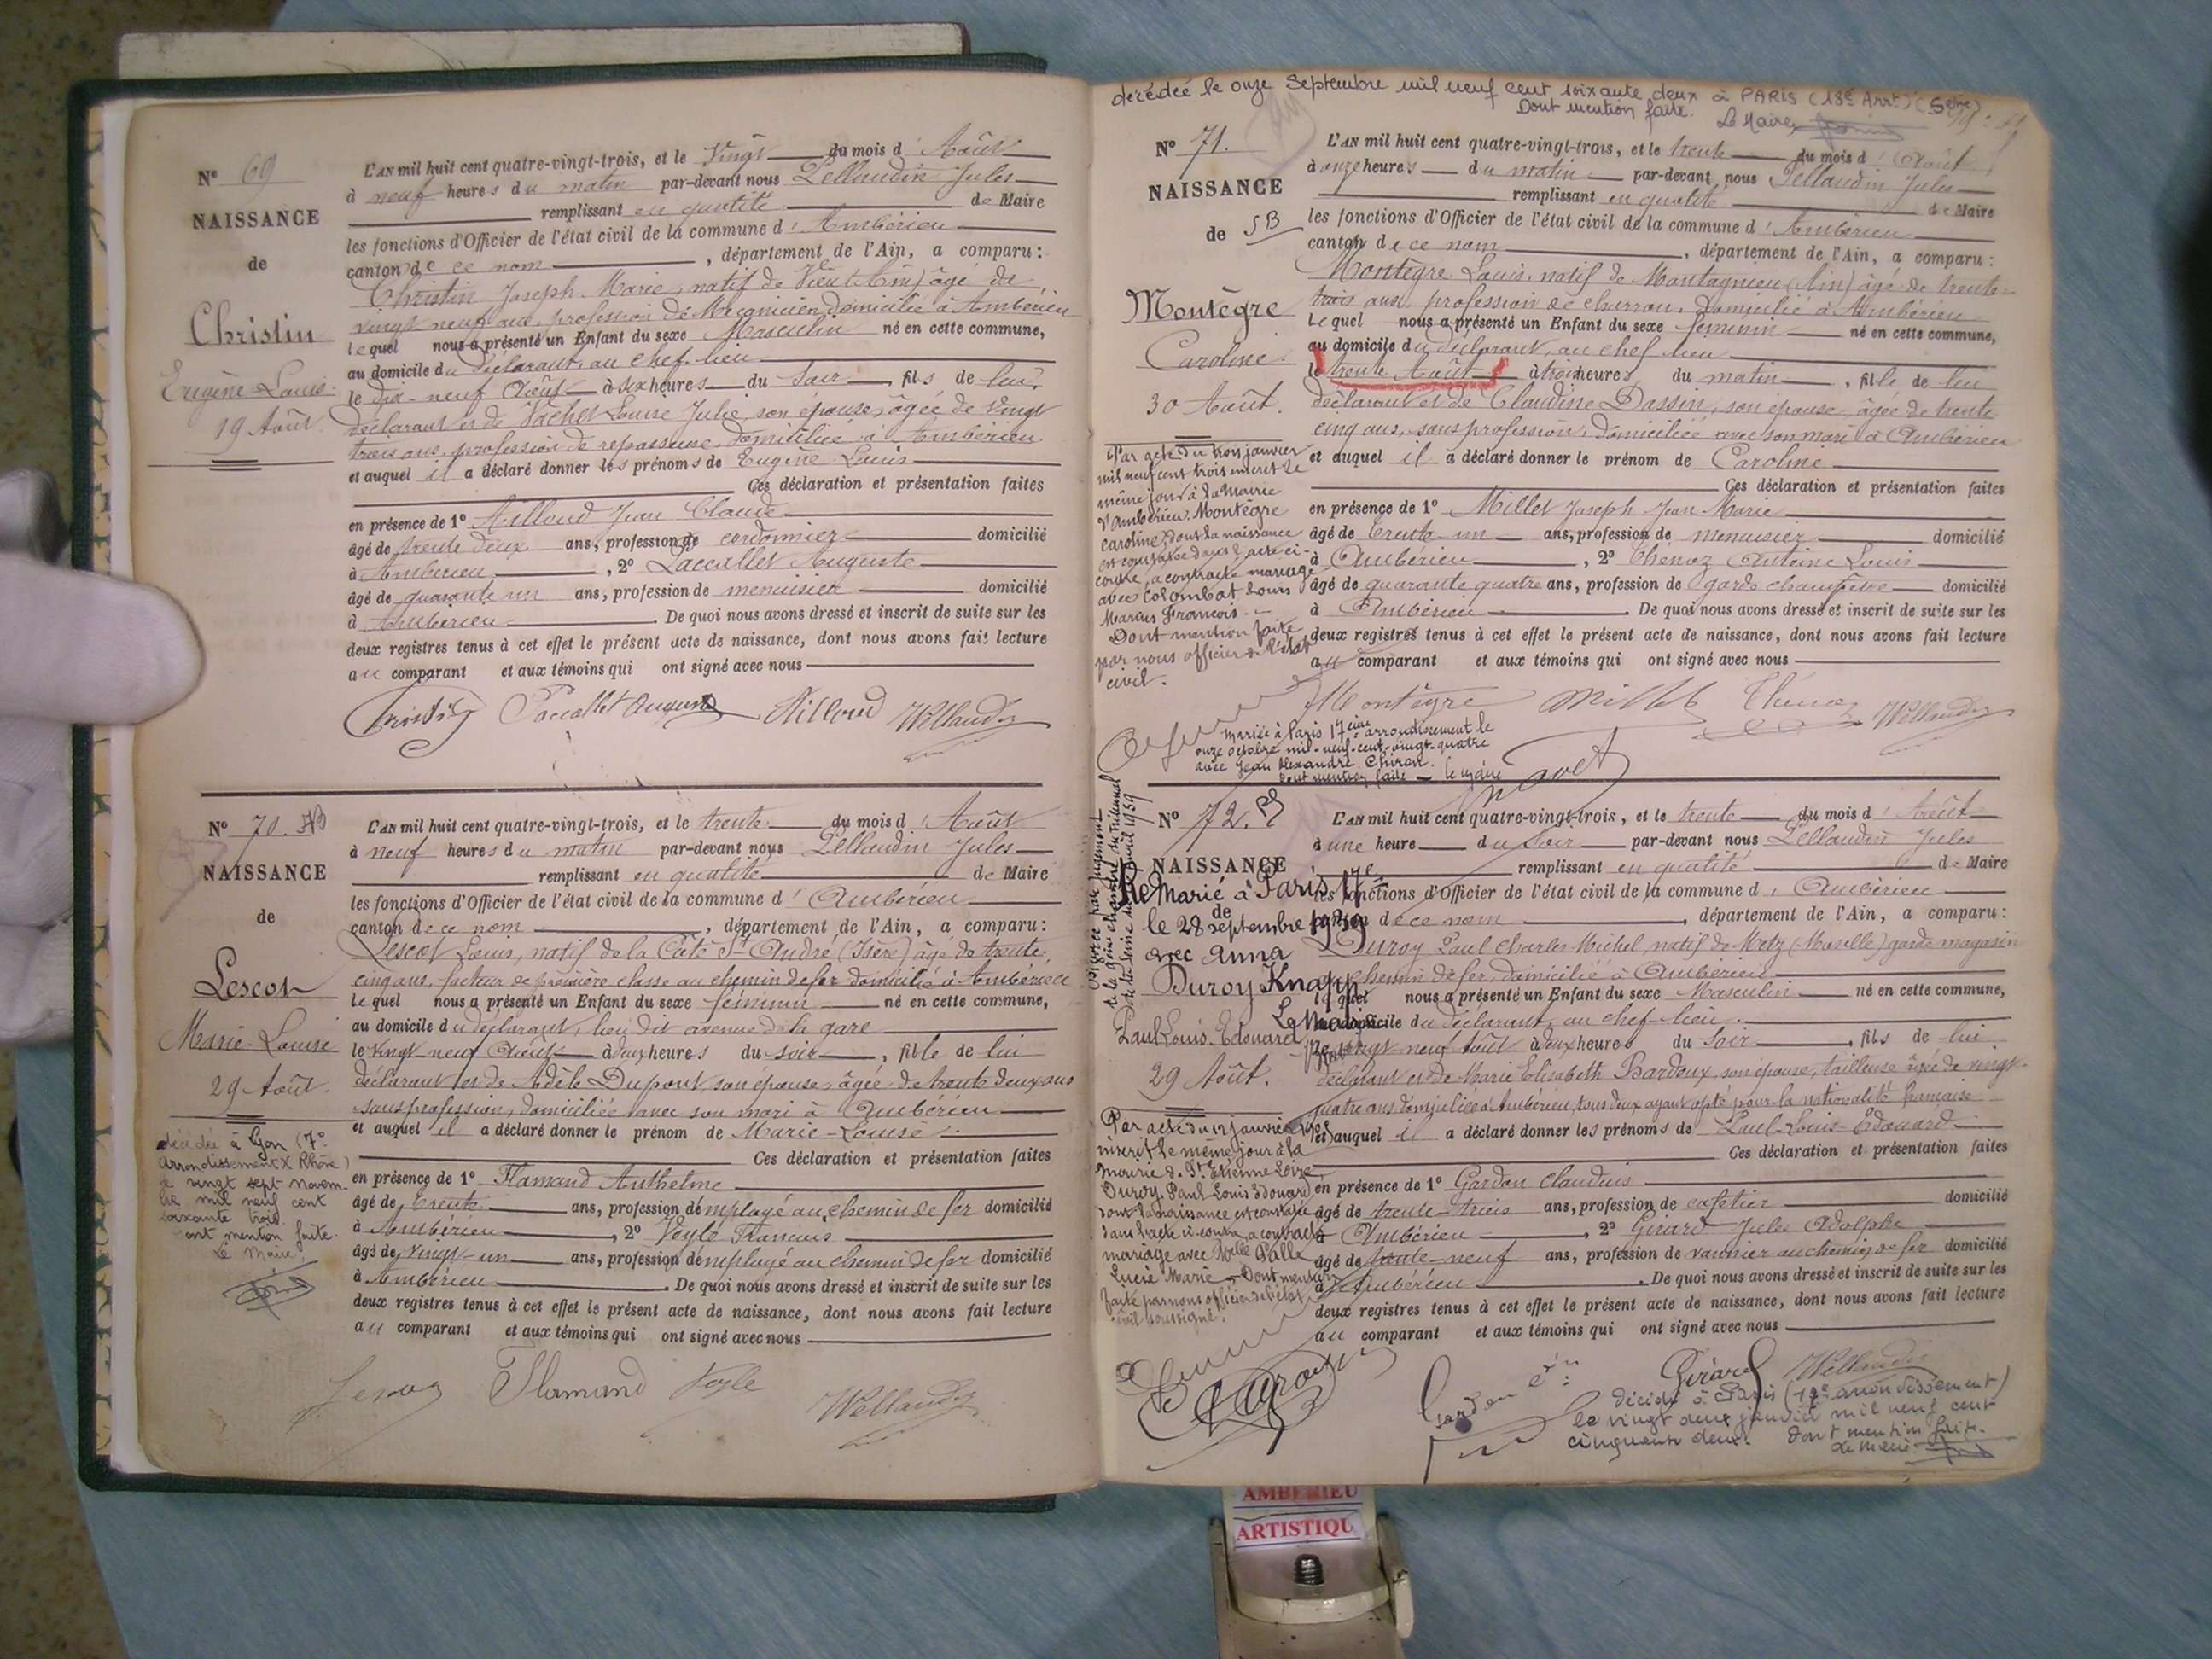 N° 69
NAISSANCE
de
Christin
Eugène Louis
19 Août
L'AN mil huit cent quatre-vingt-trois, et le vingt du mois d'Août
à neuf heures du matin par-devant nous Pellaudin Jules
remplissant en qualité de Maire
les fonctions d'Officier de l'état civil de la commune d'Ambérieu
canton de ce nom, département de l'Ain, a comparu:
Christin Joseph Marie, natif de (Ain) âgé de
vingt neuf ans, profession de Mécanicien, domicilié à Ambérieu
lequel nous a présenté un Enfant du sexe Masculin né en cette commune,
au domicile du déclarant, au chef-lieu
le dix-neuf Août à six heures du Soir, fils de lui
déclarant et de Vachet Louise Julie, son épouse, âgée de vingt
trois ans, profession de repasseuse, domiciliée à Ambérieu
et auquel il a déclaré donner les prénoms de Eugène Louis
Ces déclaration et présentation faites
en présence de 1° Ailloud Jean Claude
âgé de trente deux ans, profession de cordonnier domicilié
à Ambérieu, 2° Paccallet Auguste
âgé de quarante un ans, profession de menuisier domicilié
à Ambérieu. De quoi nous avons dressé et inscrit de suite sur les
deux registres tenus à cet effet le présent acte de naissance, dont nous avons fait lecture
au comparant et aux témoins qui ont signé avec nous
Christin Paccallet Auguste Ailloud Pellaudin
N° 70.
NAISSANCE
de
Lescot
Marie-Louise
29 Août
décédée à Lyon (7e
arrondissement) Rhône)
le vingt sept novem-
bre mil neuf cent
soixante trois.
Dont mention faite.
Le Maire
L'AN mil huit cent quatre-vingt-trois, et le trente du mois d'Août
à neuf heures du matin par-devant nous Pellaudin Jules
remplissant en qualité de Maire
les fonctions d'Officier de l'état civil de la commune d'Ambérieu
canton de ce nom, département de l'Ain, a comparu:
Lescot Louis, natif de la Côte St-André (Isère) âgé de trente
cinq ans, facteur de première classe au chemin de fer domicilié à Ambérieu
lequel nous a présenté un Enfant du sexe féminin né en cette commune,
au domicile du déclarant, lieu dit avenue de la gare
le vingt neuf Août à deux heures du soir, fille de lui
déclarant et de Adèle Dupont, son épouse, âgée de trente deux ans
sans profession, domiciliée avec son mari à Ambérieu
et auquel il a déclaré donner le prénom de Marie-Louise
Ces déclaration et présentation faites
en présence de 1° Flamand Anthelme
âgé de trente ans, profession d'employé au chemin de fer domicilié
à Ambérieu, 2° Voyle Francois
âgé de vingt-un ans, profession d'employé au chemin de fer domicilié
à Ambérieu. De quoi nous avons dressé et inscrit de suite sur les
deux registres tenus à cet effet le présent acte de naissance, dont nous avons fait lecture
au comparant et aux témoins qui ont signé avec nous
Lescot Flamand Voyle Pellaudin
décédée le onze Septembre mil neuf cent soixante deux à PARIS (18e Arrt) (Seine)
Dont mention faite. Le Maire,
N° 71.
NAISSANCE
de
Montègre
Caroline
30 Août.
Par acte du trois janvier
mil neuf cent trois inscrit le
même jour à la Mairie
d'Ambérieu. Montègre
Caroline, dont la naissance
est constatée dans l'acte ci-
contre, a contracté mariage
avec Colombat Louis
Marius François.
Dont mention faite
par nous officier de l'état
civil.
L'AN mil huit cent quatre-vingt-trois, et le trente du mois d'Août
à onze heures du matin par-devant nous Pellaudin Jules
remplissant en qualité de Maire
les fonctions d'Officier de l'état civil de la commune d'Ambérieu
canton de ce nom, département de l'Ain, a comparu:
Montègre Louis, natif de Montagnieu (Ain) âgé de trente-
trois ans, profession de charron, domicilié à Ambérieu
Lequel nous a présenté un Enfant du sexe féminin né en cette commune,
au domicile du déclarant, au chef lieu
le trente Août à trois heures du matin, fille de lui
déclarant et de Claudine Dassin, son épouse, âgée de trente
cinq ans, sans profession, domiciliée avec son mari à Ambérieu
et auquel il a déclaré donner le prénom de Caroline
Ces déclaration et présentation faites
en présence de 1° Millet Joseph Jean Marie
âgé de trente-un ans, profession de menuisier domicilié
à Ambérieu, 2° Thénoz Antoine Louis
âgé de quarante quatre ans, profession de garde champêtre domicilié
à Ambérieu. De quoi nous avons dressé et inscrit de suite sur les
deux registres tenus à cet effet le présent acte de naissance, dont nous avons fait lecture
au comparant et aux témoins qui ont signé avec nous
Montègre Millet Thénoz Pellaudin
Mariée à Paris 17ième arrondissement le
onze octobre mil-neuf-cent-vingt-quatre
avec Jean Alexandre Chiron.
Dont mention faite — le maire
N° 72.
NAISSANCE
de
Duroy
Paul Louis Edouard
29 Août.
Remarié à Paris 17e
le 28 septembre 1939
avec Anna
Knapp
Le Maire
Divorcé par jugement
de la chambre du tribunal
de la Seine du avril 1939
Par acte du 12 janvier
inscrit le même jour à la
mairie de St Etienne Loire
Duroy Paul Louis Edouard
dont la naissance est constatée
dans l'acte ci-contre, a contracté
mariage avec Melle Palle
Lucie Marie. Dont mention
faite par nous officier de l'état
civil soussigné.
L'AN mil huit cent quatre-vingt-trois, et le trente du mois d'Août
à une heure du soir par-devant nous Pellaudin Jules
remplissant en qualité de Maire
les fonctions d'Officier de l'état civil de la commune d'Ambérieu
canton de ce nom, département de l'Ain, a comparu:
Duroy Paul Charles Michel, natif de Metz (Moselle) garde magasin
au chemin de fer, domicilié à Ambérieu
lequel nous a présenté un Enfant du sexe Masculin né en cette commune,
au domicile du déclarant, au chef-lieu.
le vingt-neuf Août à deux heures du Soir, fils de lui
déclarant et de Marie Elisabeth Bardoux, son épouse, tailleuse âgée de vingt-
quatre ans domiciliée à Ambérieu, tous deux ayant opté pour la nationalité française
et auquel il a déclaré donner les prénoms de Paul-Louis-Edouard
Ces déclaration et présentation faites
en présence de 1° Gardon Claudius
âgé de trente-trois ans, profession de cafetier domicilié
à Ambérieu, 2° Girard Jules Adolphe
âgé de trente-neuf ans, profession de vannier au chemin de fer domicilié
à Ambérieu. De quoi nous avons dressé et inscrit de suite sur les
deux registres tenus à cet effet le présent acte de naissance, dont nous avons fait lecture
au comparant et aux témoins qui ont signé avec nous
Duroy Gardon Girard Pellaudin
décédé à Paris (17e arrondissement)
le vingt deux janvier mil neuf cent
cinquante deux. Dont mention faite.
Le Maire
AMBERIEU
ARTISTIQU